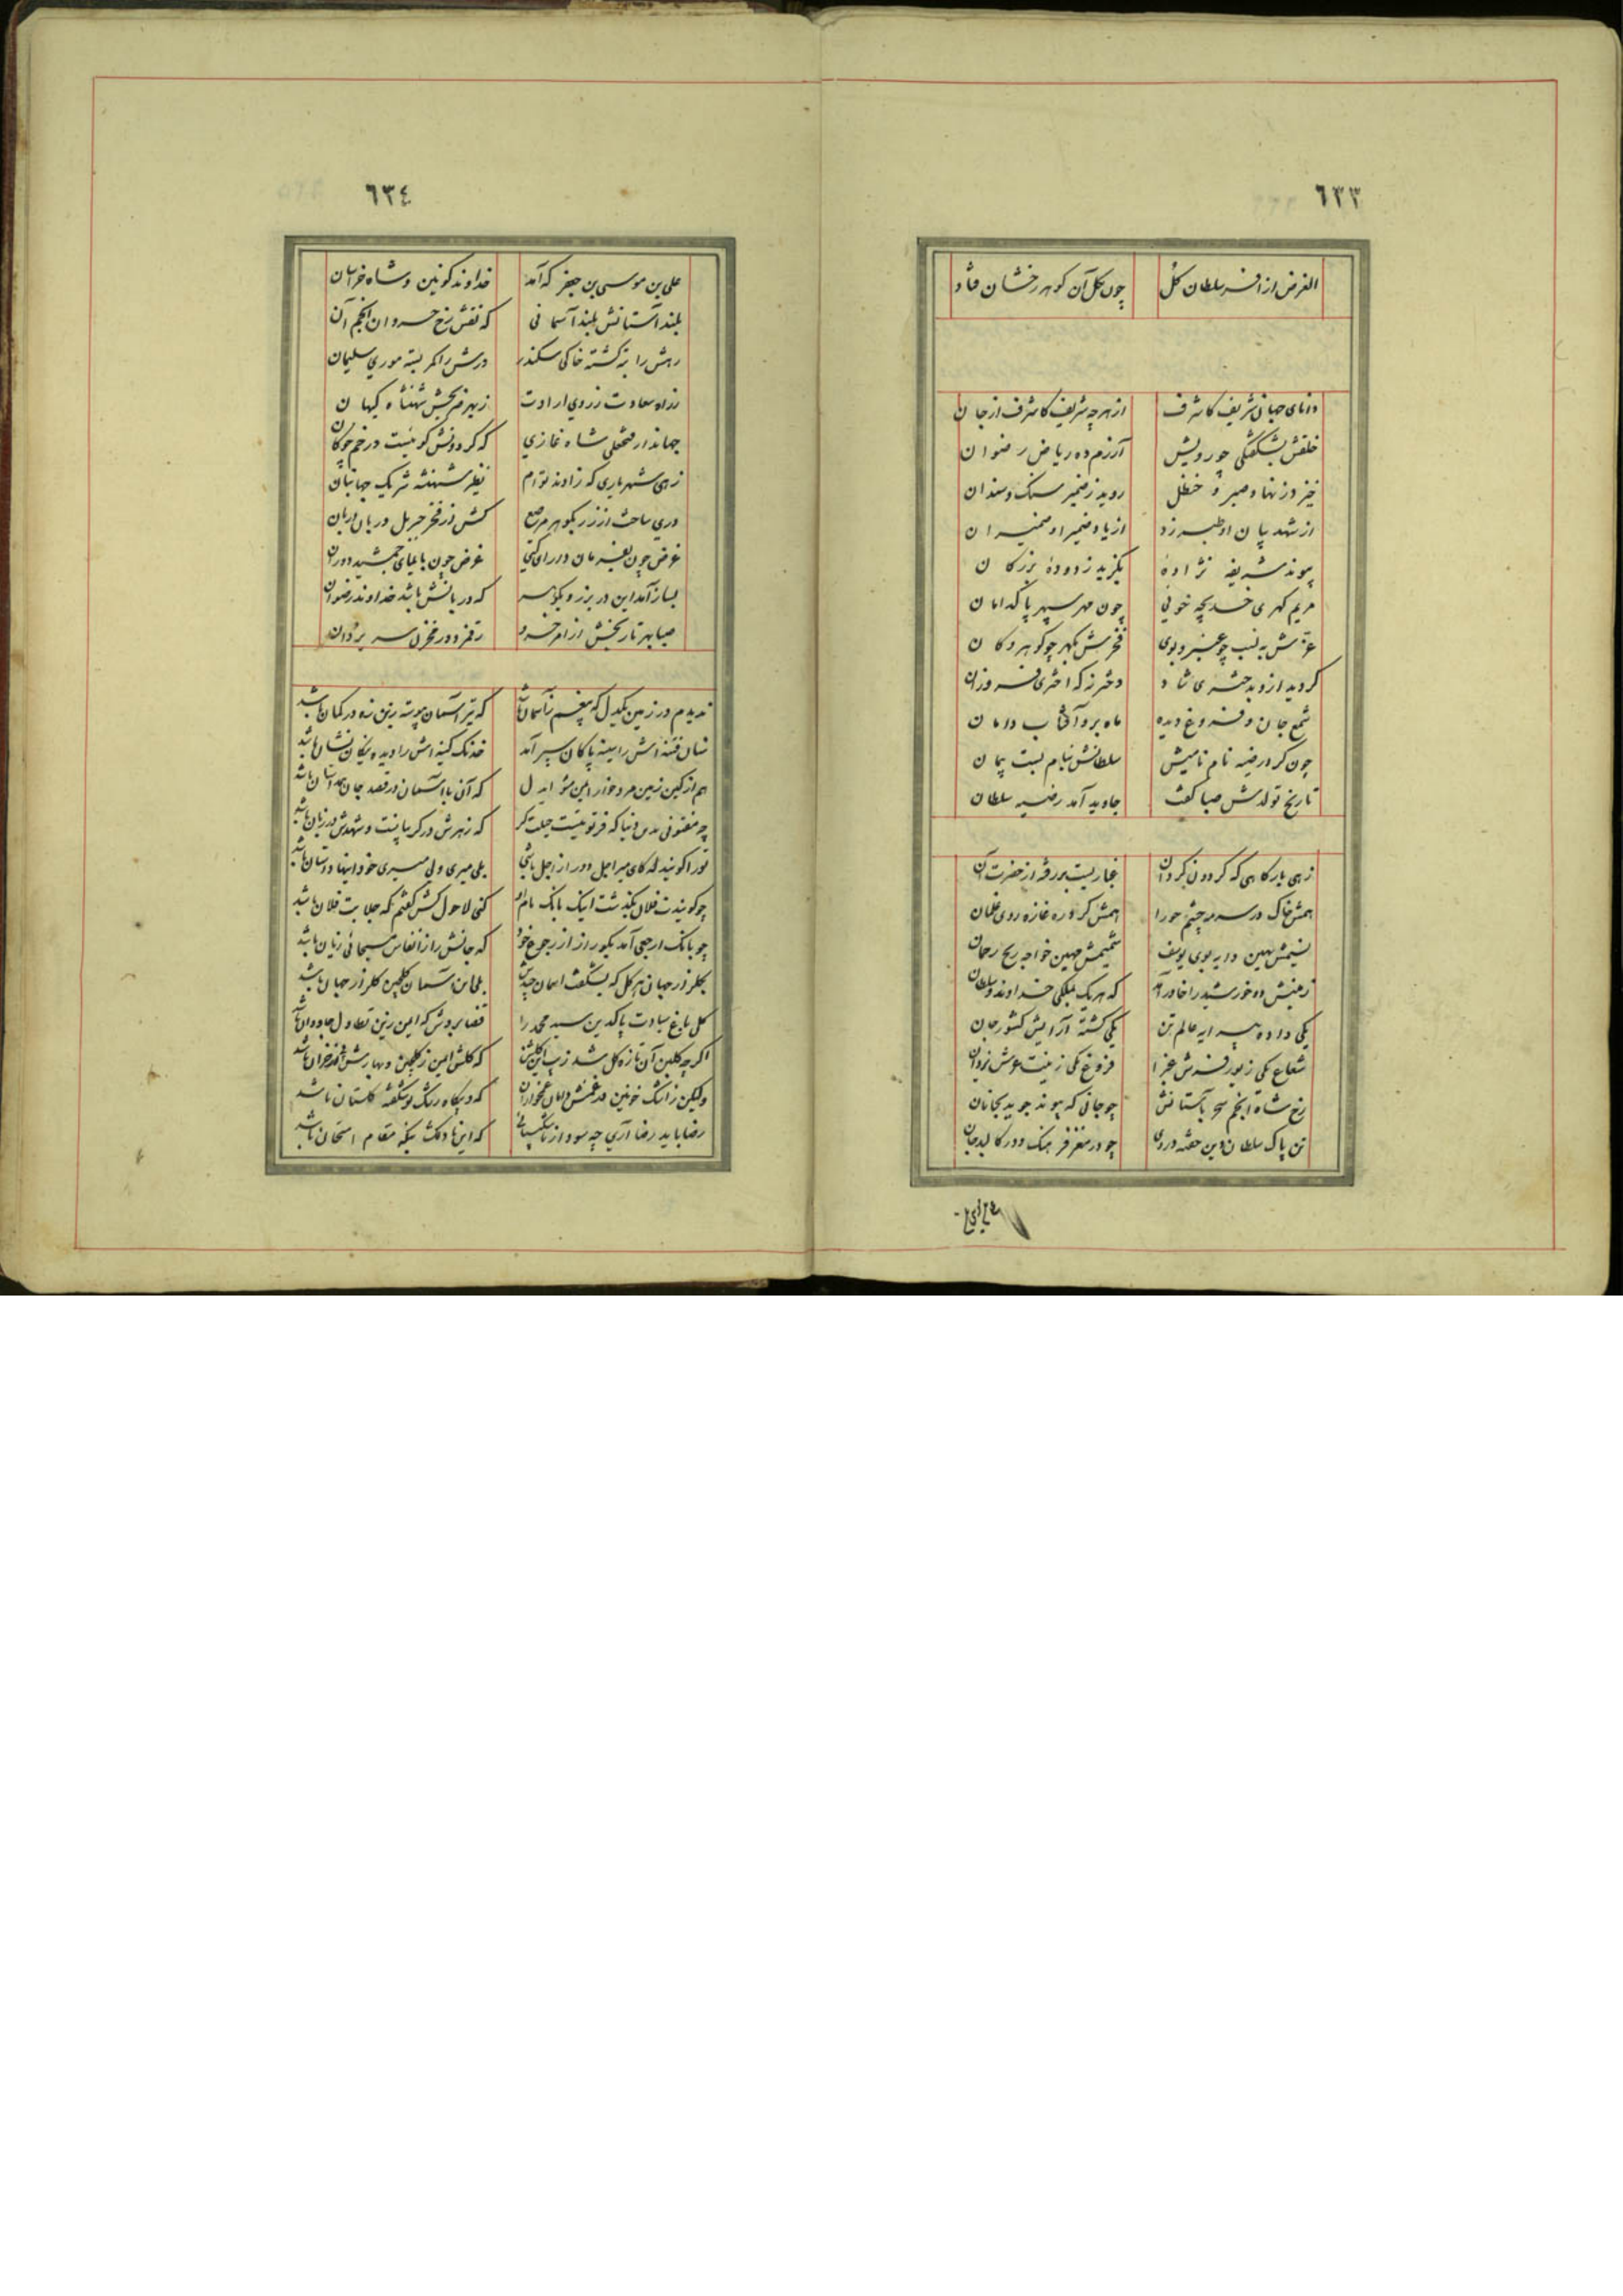 ٦٣٣
الغرض از افسر سلطان گل چون بگل آن گوهر رخشان فتاد
دانای جهان شریف کاشرف از هر چه شریف کاشرف از جان
خلقش بشکفتگی چو رویش آزرم ده ریاض رضوان
خیزد ز نهاد صبر و حنظل روید ز ضمیر سنگ و سندان
از شهد بیان او طبرزد از یاد ضمیر او ضمیران
پیوند شریفه نژاده بگزید ز دوده بزرگان
مریم گهری خدیجه خوئی چون مهر سپهر پاکدامان
عزتش به نسب چو عنبر و بوی فخرش بگهر چو گوهر و کان
گردید ازو بدختری شاد دختر نه که اختری فروزان
شمع جان و فروغ دیده ماه برو آفتاب دامان
چون کرد رضیه نام نامیش سلطانش بنام بست پیمان
تاریخ تولدش صبا گفت جاوید آمد رضیه سلطان
زهی بارگاهی که گردون گردان غباریست بر رفته از حضرت آن
همش خاک در سرمه چشم حورا همش گرد ره غازه روی غلمان
نسیمش بهین دایه بوی یوسف شمیمش مهین خواجه ریح رحمان
زمینش دو خورشید را خاور آمد که هر یک بملکی خداوند و سلطان
یکی داده پیرایه عالم تن یکی گشته آرایش کشور جان
شعاع یکی زیور فرش غبرا فروغ یکی زینت عرش یزدان
رخ شاه انجم سحر بآستانش چو جانی که پیوند جوید بجانان
تن پاک سلطان دین خفته در وی چو در مغز فرهنگ و در کالبد جان
٦٣٤
علی بن موسی بن جعفر که آمد خداوند کونین و شاه خراسان
بلند آستانش بلند آسمانی که نقش رخ خسروان انجم آن
رهش را بتن گشته خاکی سکندر درش را کمر بسته موری سلیمان
ز راه سعادت ز روی ارادت زبهر ضریحش شهنشاه کیهان
جهاندار فتحعلی شاه غازی که گردونش گوئیست در خم چوگان
زهی شهریاری که زادند توام نظیر شهنشه شریک جهانبان
دری ساخت از زر بگوهر مرصع کش از فخر جبریل دربان دربان
غرض چون بفرمان دارای گیتی غرض چون بایمای جمشید دوران
بساز آمد این در بزر و بگوهر که دربانش باشد خداوند رضوان
صبا بهر تاریخش از امر خسرو رقم زد در مخزن سر یزدان
ندیدم در زمین یکدل که بیغم ز آسمان باشد که تیر آسمان پیوسته زینش زه در کمان باشد
نشان فتنه اش را سینه پاکان سپر آمد خدنگ کینه اش را دیده نیکان نشان باشد
هم از کین زمین مردخوار ایمن مشو ایدل که آن با آسمان در قصد جان همداستان باشد
چه مفتونی بدین دنیا که فرتوتیست حیلت گر که زهرش در گریبانست و شهدش در زبان باشد
تو را گویند که کای میر اجل دور از اجل باشی بلی میری ولی میری خود اینها داستان باشد
چو گویندت فلان بگذشت اینک بانگ ماتم او کنی لاحول کش گفتم که جلابت فلان باشد
چو بانگ ارجعی آمد بگو راز از رجوع خود که جانش را ز انفاس مسیحائی زیان باشد
بگلزار جهان هر گل که بشکفت آسمان چیدش بلی این آسمان گلچین گلزار جهان باشد
گل باغ سیادت پاکدین سید محمد را قضا بردش که ایمن زین تطاول جاودان باشد
اگر چه گلبن آن تازه گل شد زیب این گلشن که گلش ایمن ز گلچین و بهارش از خزان باشد
ولیکن ز اشک خونین در غمش دامان غمخواران که و بیگاه رشک نوشگفته گلستان باشد
رضا باید رضا آری چه سود از ناشکیبائی که این نادلکش بنگه مقام امتحان باشد